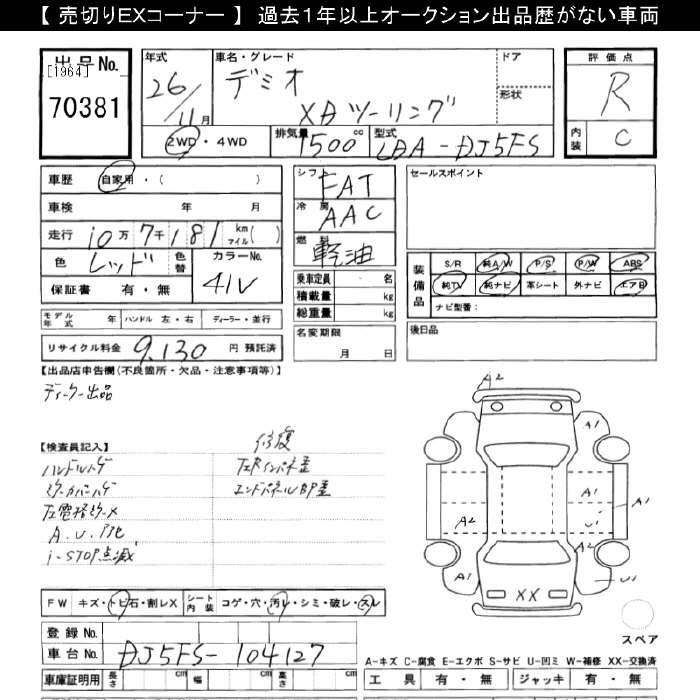 【 売切りEXコーナー 】 過去1年以上オークション出品歴がない車両
出品No.
[1964]
70381
年式
26/11月
車名・グレード
デミオ
XDツーリング
ドア
形状
評価点
R
内装
C
2WD・4WD
排気量 1500 cc
型式 LDA-DJ5FS
車歴 自家用・( )
車検 年 月
走行 10万7千181 km マイル( )
色 レッド 色替
カラーNo. 41V
保証書 有・無
シフト FAT
冷房 AAC
燃料 軽油
乗車定員 名
積載量 kg
総重量 kg
セールスポイント
装備品
S/R 純A/W P/S P/W ABS
純TV 純ナビ 革シート 外ナビ エアB
ナビ型番:
モデル年式 年 ハンドル 左・右 ディーラー・並行
リサイクル料金 9,130 円 預託済
名変期限
月 日
後日品
【出品店申告欄(不良箇所・欠品・注意事項等)】
ディーラー出品
【検査員記入】
ハンドルハゲ
A.U.凹
i-STOP点滅
修復
エンドパネル凹歪
A2
A1
A1
A1
A1
A2
U1
A2
A1
XX
U1
スペア
FW キズ・トビ石・割レX
シート内装 コゲ・穴・汚レ・シミ・破レ・スレ
登録No.
車台No. DJ5FS-104127
車庫証明用 長さ cm 幅 cm 高さ cm
A-キズ C-腐食 E-エクボ S-サビ U-凹ミ W-補修 XX-交換済
工具 有・無 ジャッキ 有・無